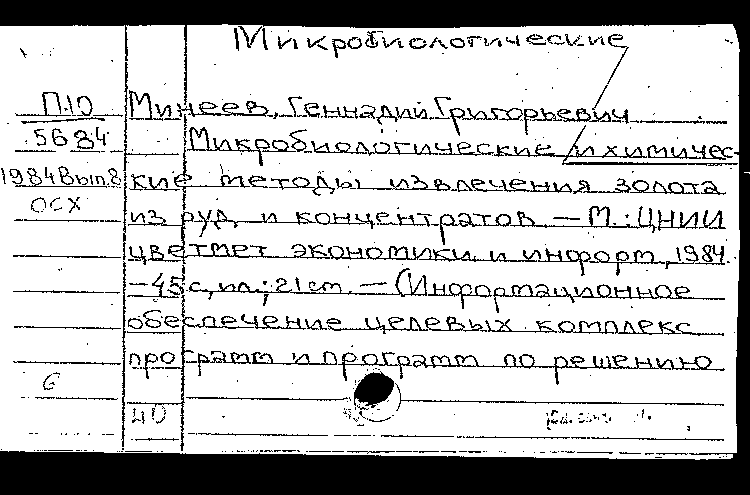 Микробиологические
П10 Минеев, Геннадий Григорьевич
5684 Микробиологические и химичес-
1984 Вып.8 кие методы извлечения золота
ОСХ из руд и концентратов. — М.: ЦНИИ
цветмет экономики и информ, 1984.
— 45 с, ил; 21 cm. — (Информационное
обеспечение целевых комплекс
програмт и програмт по решению
6
40